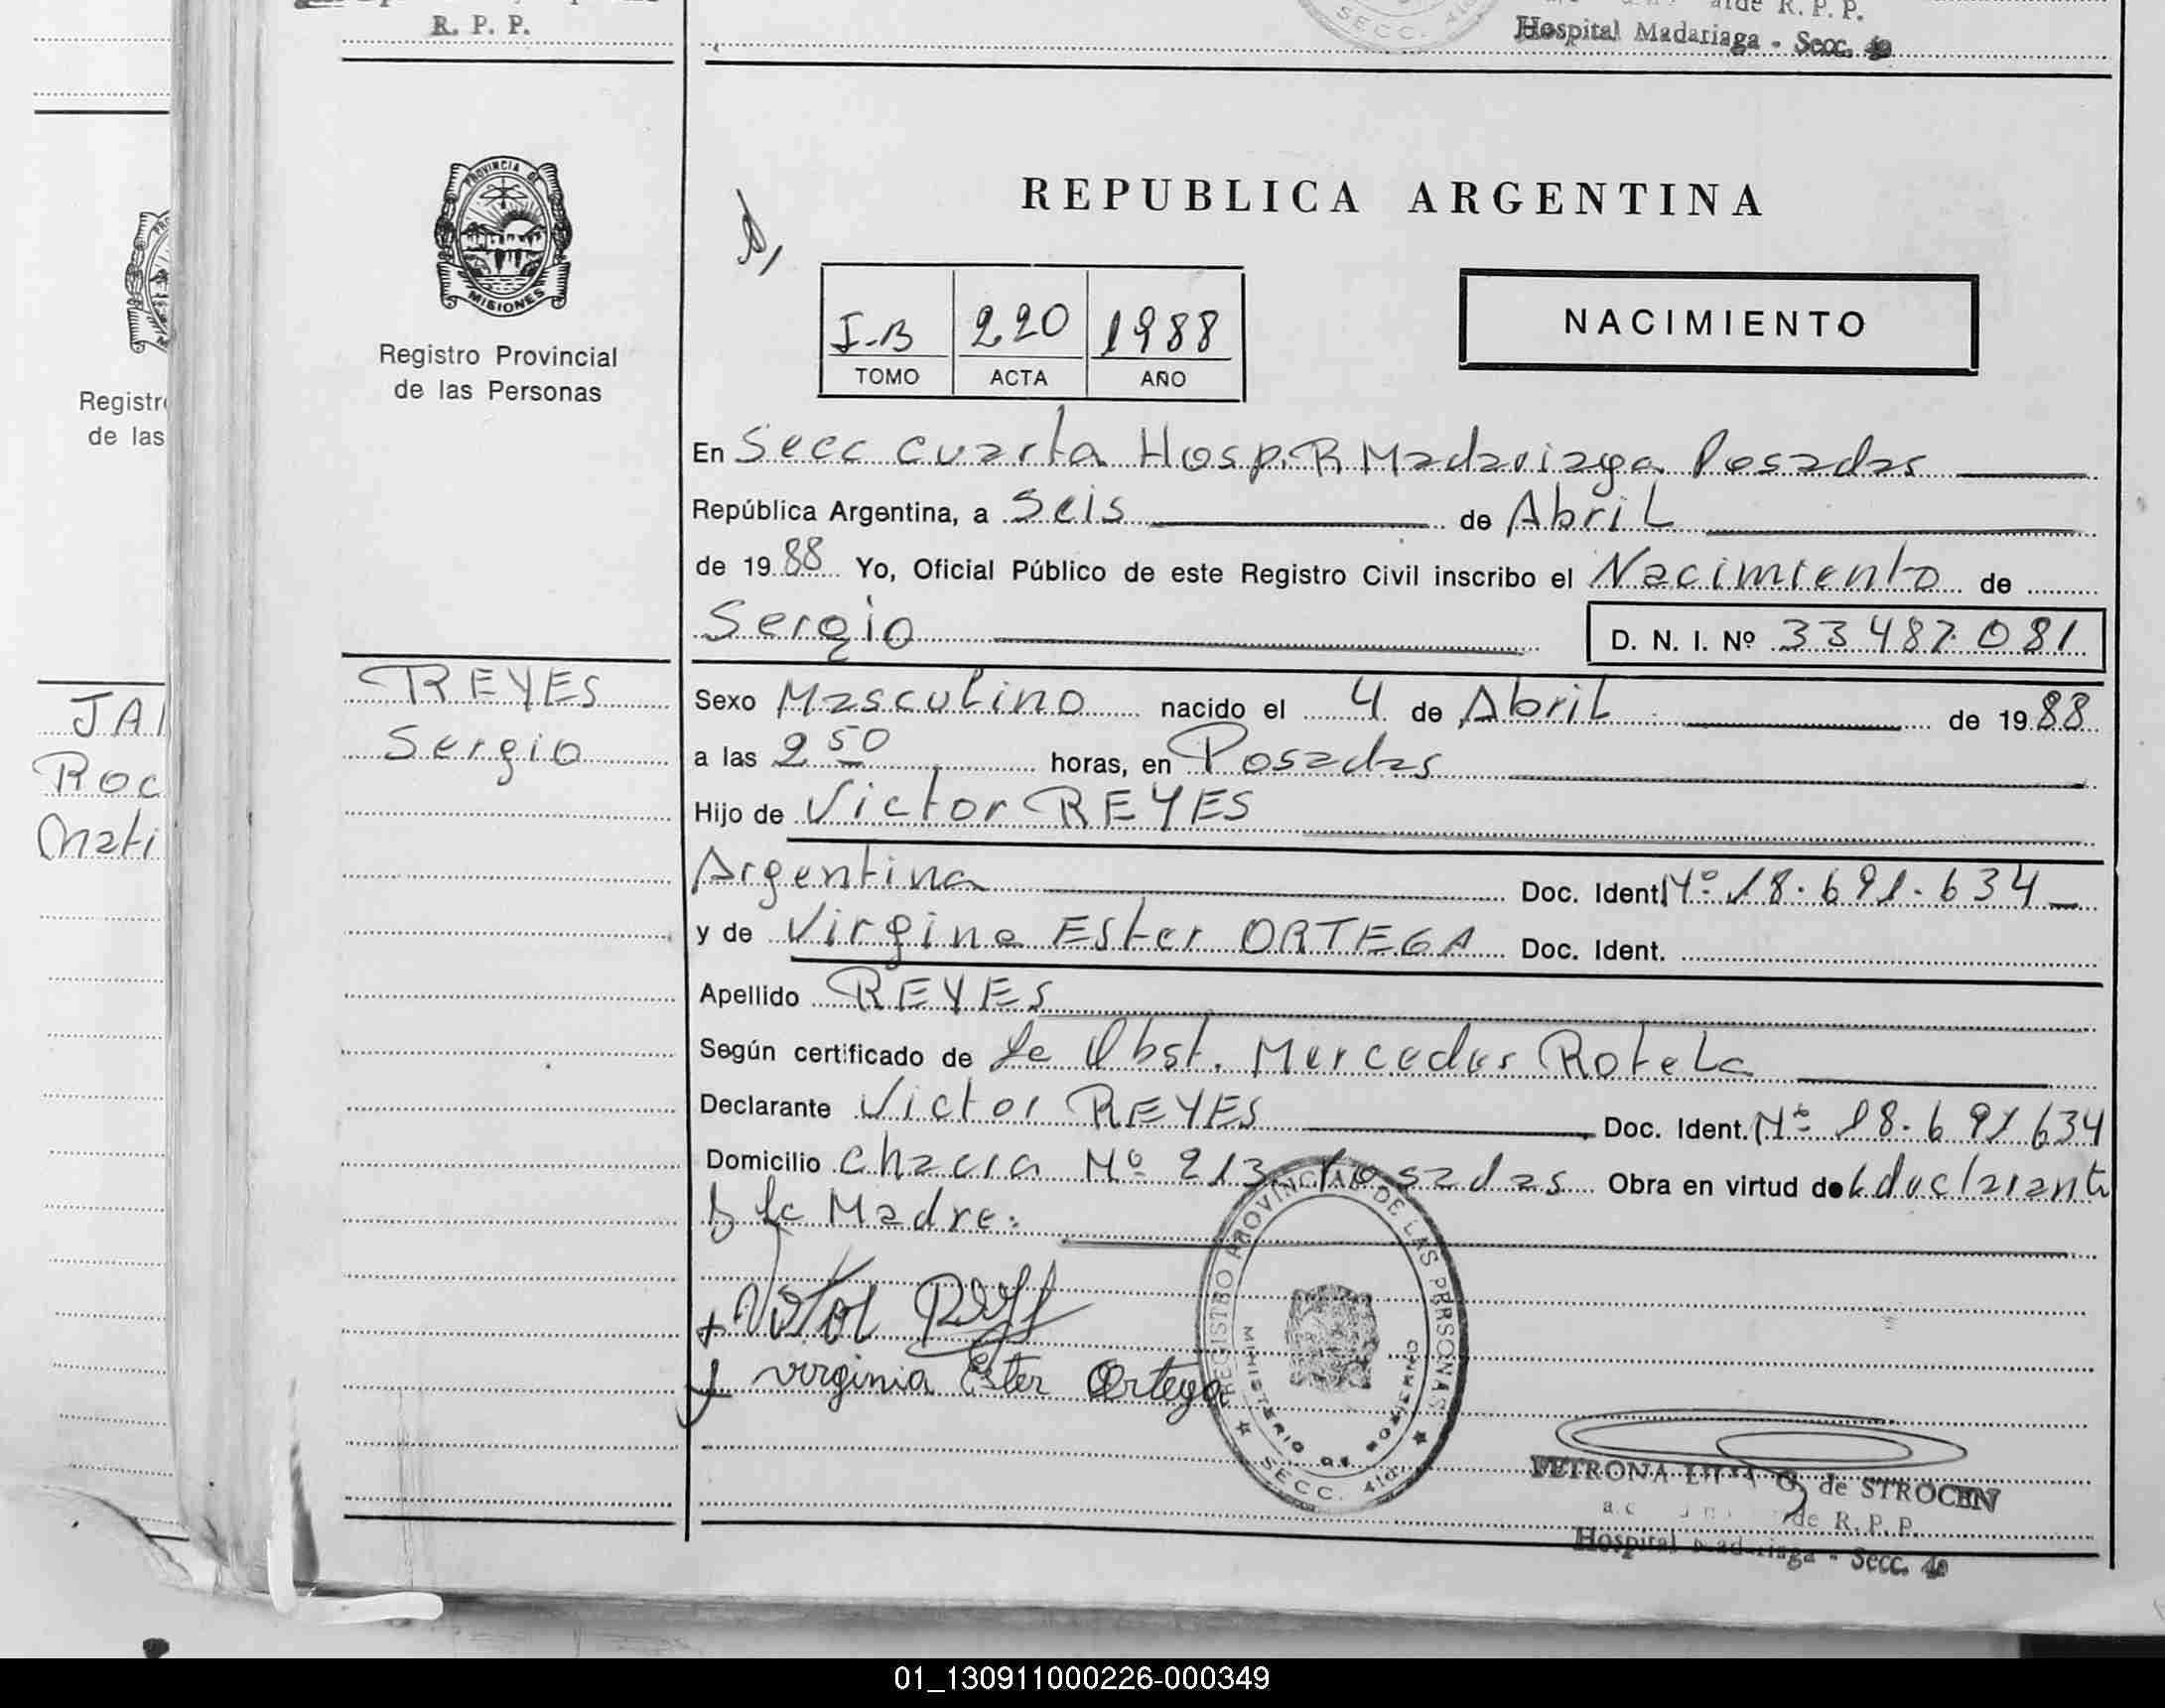 R. P. P.
SECC. 4ta
R. P. P.
Hospital Madariaga - Secc. 4a
PROVINCIA DE
MISIONES
Registro Provincial
de las Personas
REPUBLICA ARGENTINA
NACIMIENTO
I-B 220 1988
TOMO ACTA AÑO
Registr
de las
En Secc cuarta Hosp. R Madariaga Posadas
República Argentina, a Seis de Abril
de 1988 Yo, Oficial Público de este Registro Civil inscribo el Nacimiento de
Sergio D. N. I. Nº 33487081
REYES
Sergio
JA
Roc
Mati
Sexo Masculino nacido el 4 de Abril de 1988
a las 2 50 horas, en Posadas
Hijo de Victor REYES
Argentina Doc. Ident. Nº 18.691.634
y de Virgina Ester ORTEGA Doc. Ident.
Apellido REYES
Según certificado de la Obst. Mercedes Rotela
Declarante Victor REYES Doc. Ident. Nº 18.691634
Domicilio chacra Nº 213 Posadas Obra en virtud del declarante
y la Madre.
Victor Reyes
virginia Ester Ortega
REGISTRO PROVINCIAL DE LAS PERSONAS
MINISTERIO DE GOBIERNO
SECC. 4ta
PETRONA G. de STROCEN
de R. P. P.
Hospital Madariaga - Secc. 4a
01_130911000226-000349